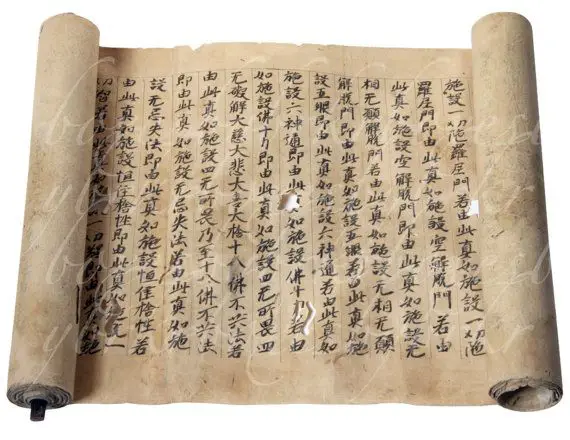 施設一切陁羅尼門若由此真如施設一切陁
羅尼門即由此真如施設空解脫門若由
此真如施設空解脫門即由此真如施設无
相无願解脫門若由此真如施設无相无願
解脫門即由此真如施設五眼若由此真如施
設五眼即由此真如施設六神通若由此真如
施設六神通即由此真如施設佛十力若由
如施設佛十力即由此真如施設四无所畏四
无礙解大慈大悲大喜大捨十八佛不共法若
由此真如施設四无所畏乃至十八佛不共法
即由此真如施設无忘失法若由此真如施
設无忘失法即由此真如施設恒住捨性若
由此真如施設恒住捨性即由此真如施設一
切智若由此真如一切智即由此真如